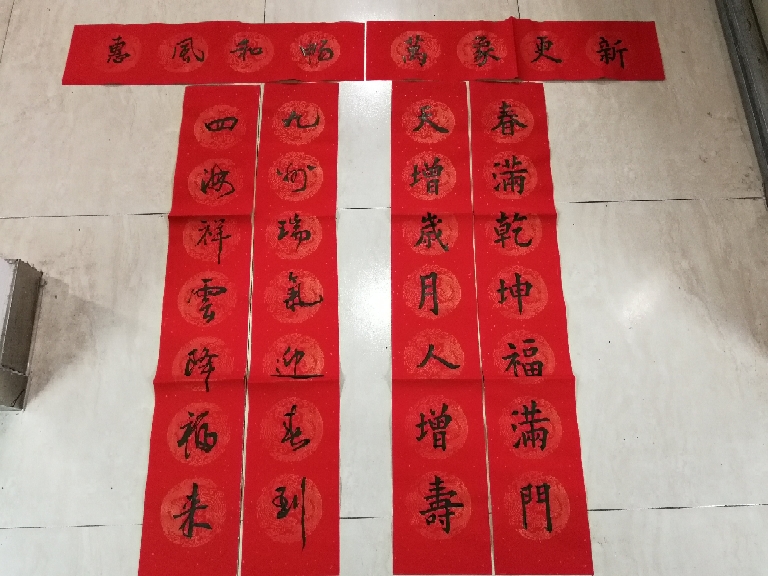 惠風和暢
萬象更新
四海祥雲降福来
九州瑞氣迎春到
天增歲月人增壽
春滿乾坤福滿門